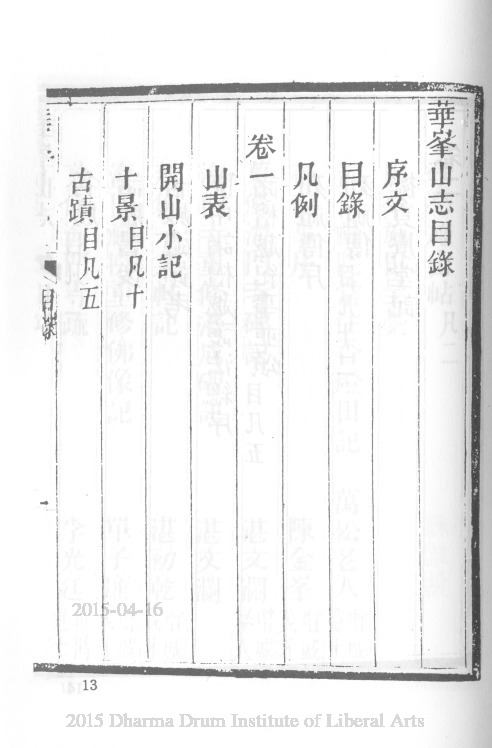 華峯山志目錄
序文
目錄
凡例
卷一
山表
開山小記
十景目凡十
古蹟目凡五
目錄
一
2015-04-16
13
2015 Dharma Drum Institute of Liberal Arts